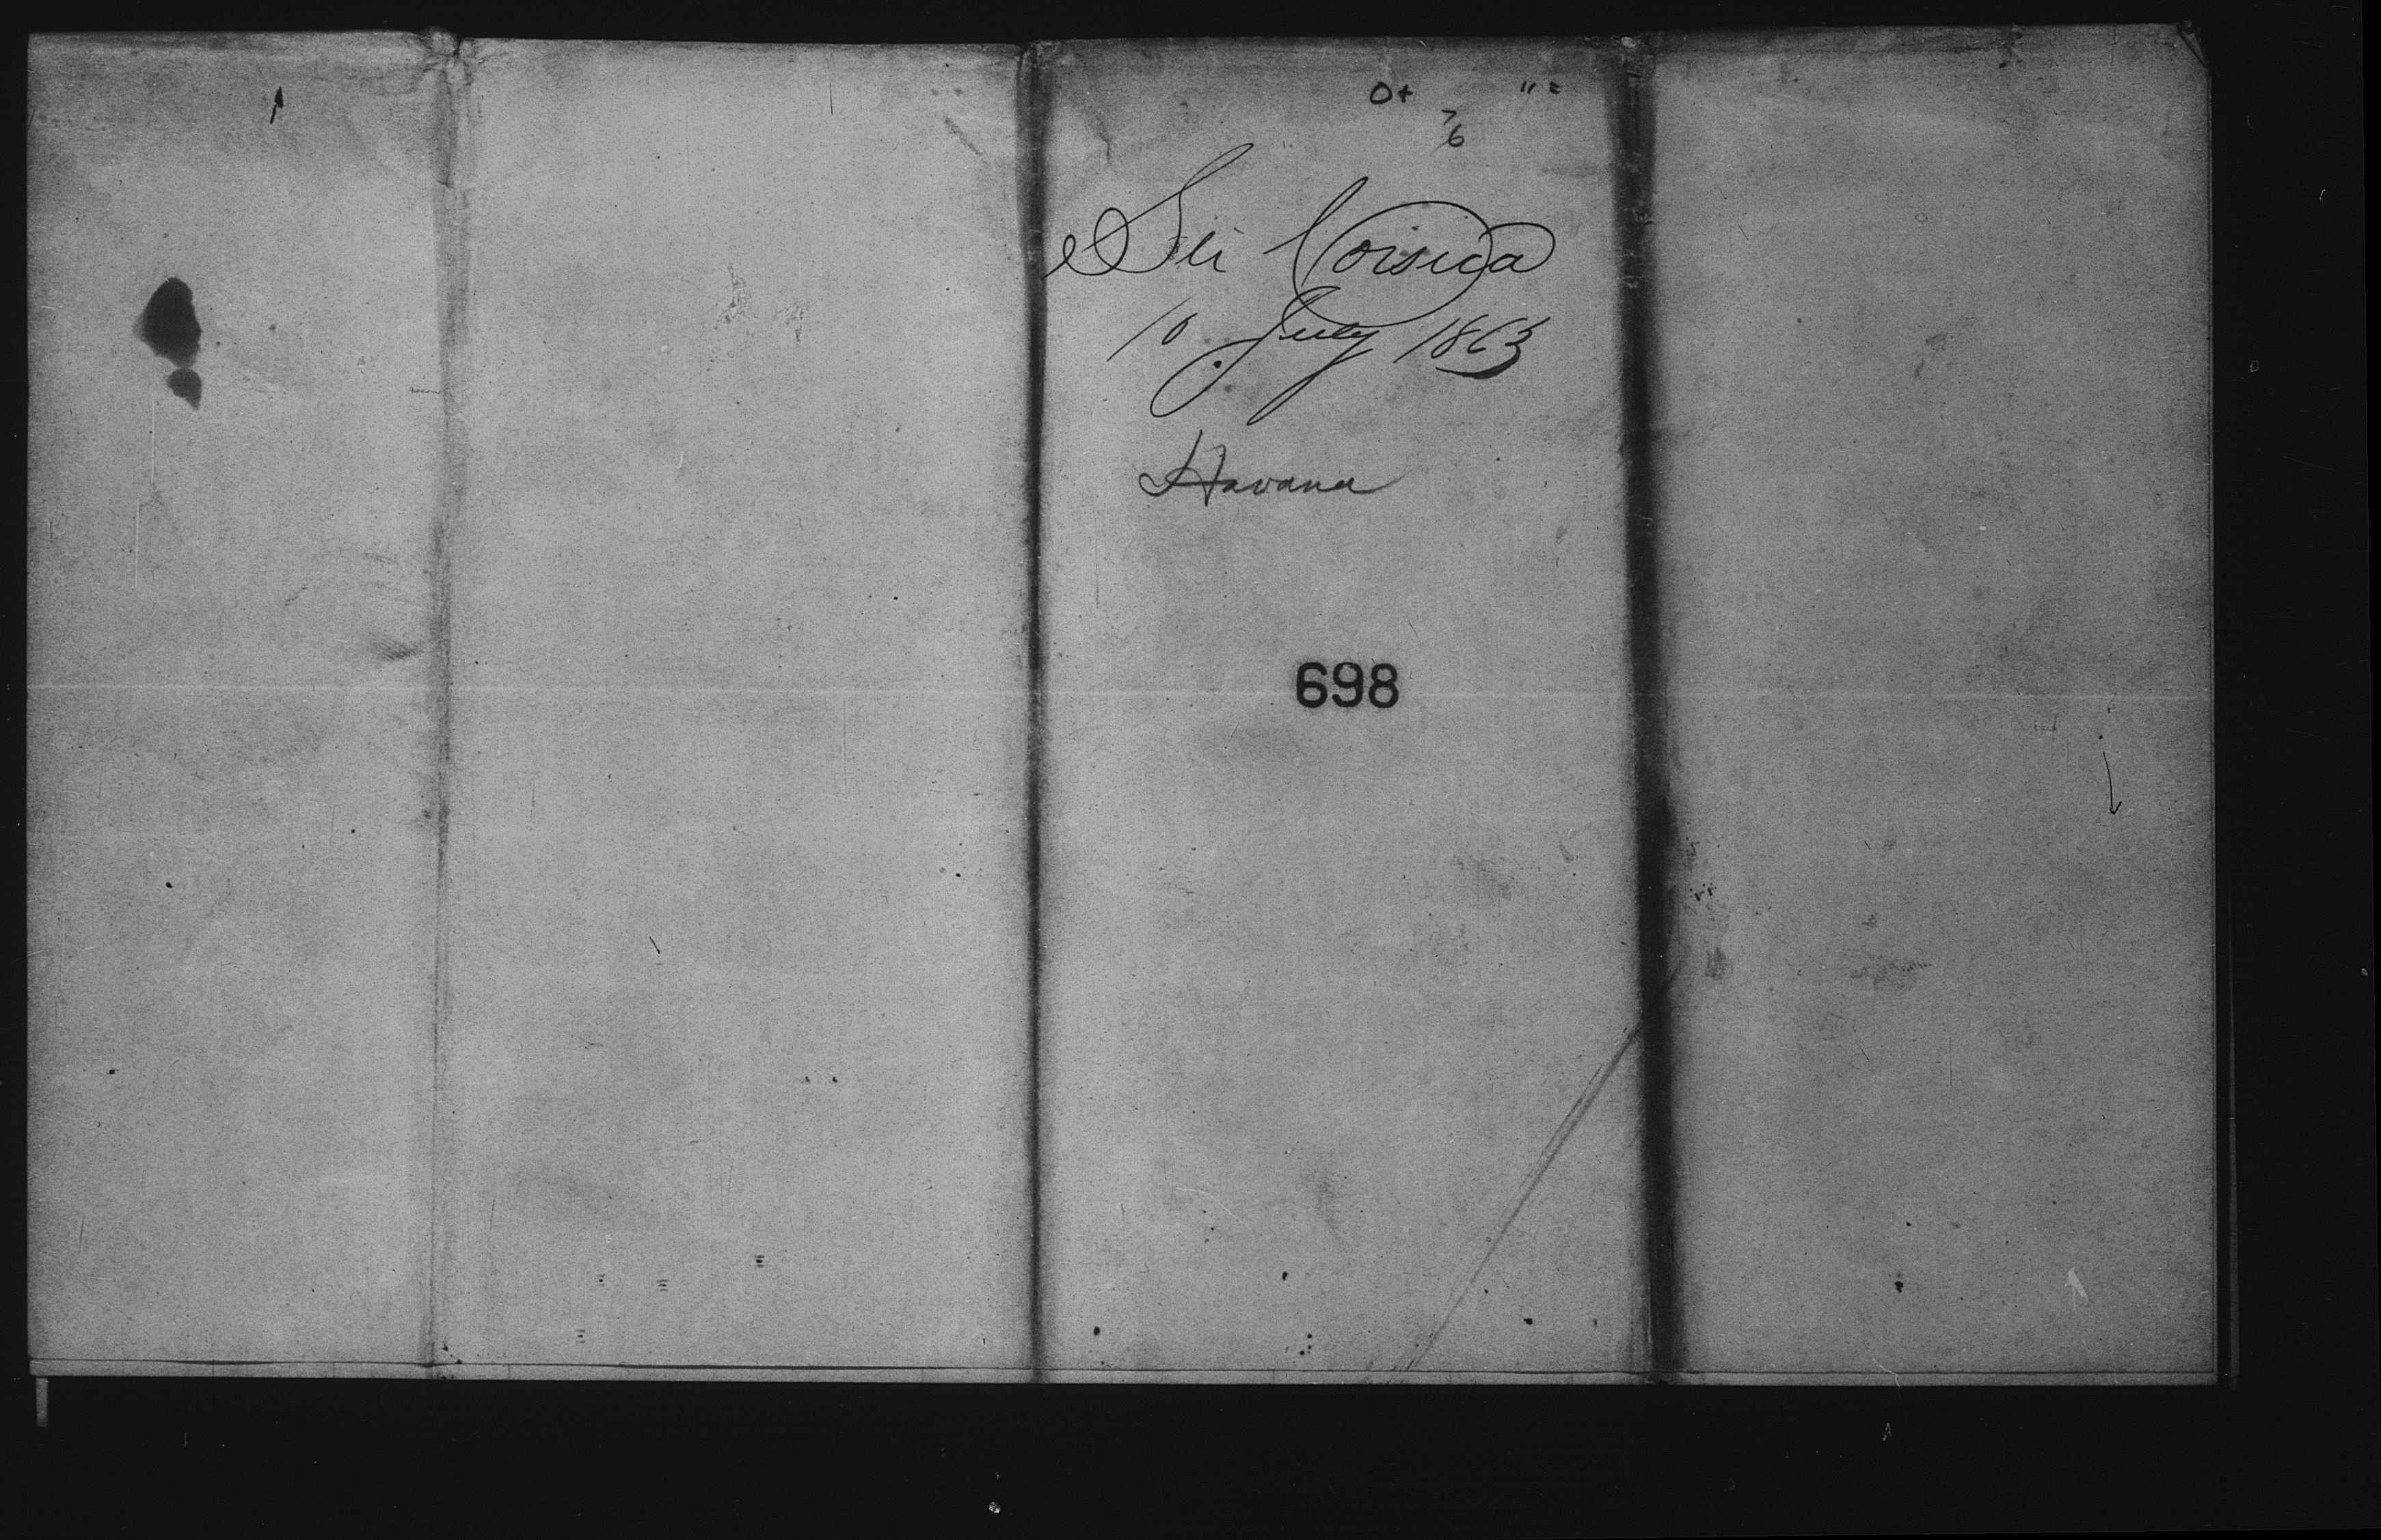 Str Corsica
10 July 1863
Havana
698